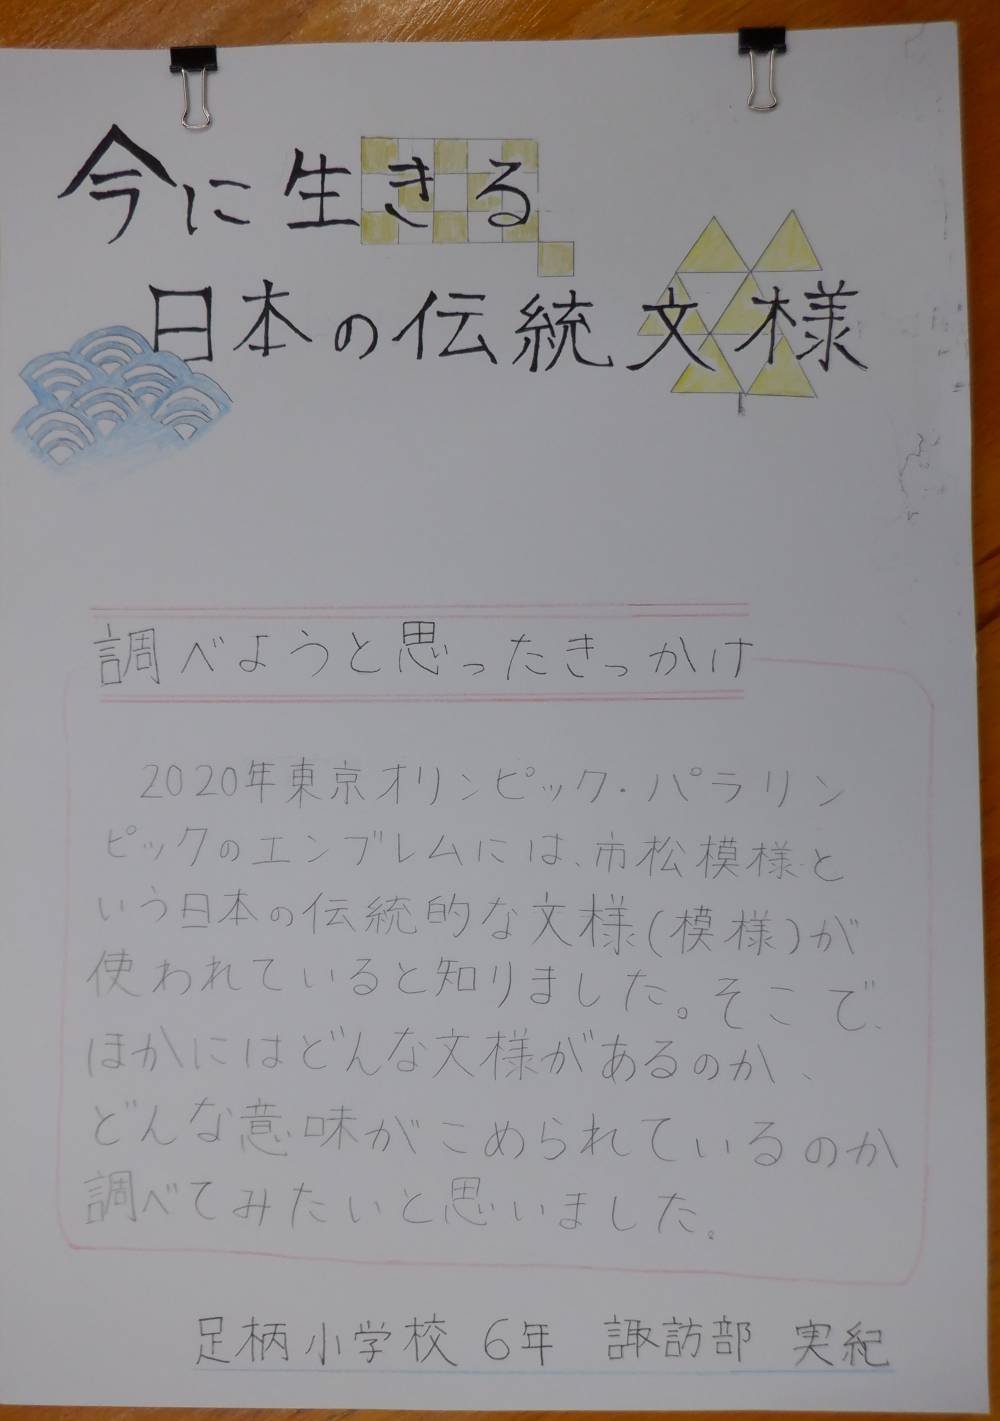 今に生きる
日本の伝統文様
調べようと思ったきっかけ
2020年東京オリンピック・パラリン
ピックのエンブレムには、市松模様と
いう日本の伝統的な文様(模様)が
使われていると知りました。そこで、
ほかにはどんな文様があるのか、
どんな意味がこめられているのか
調べてみたいと思いました。
足柄小学校 6年 諏訪部 実紀